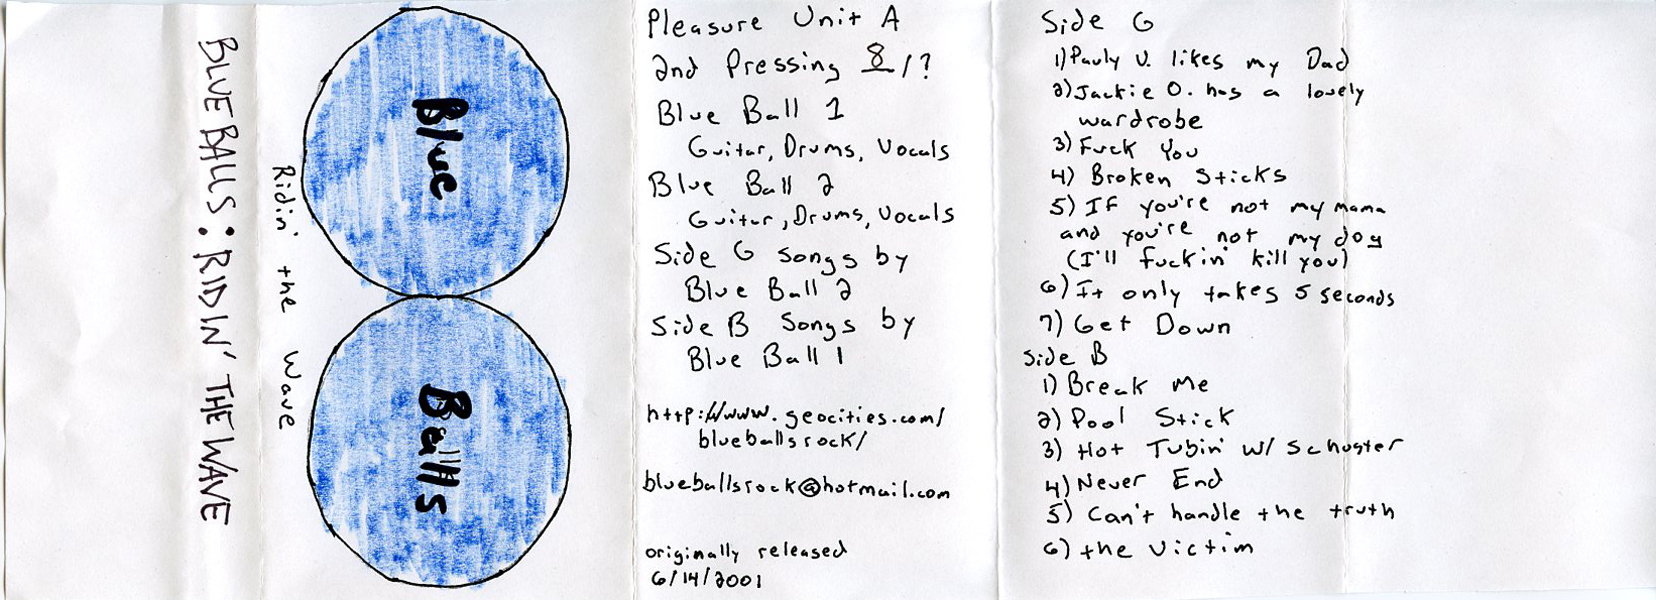 BLUE BALLS: RIDIN' THE WAVE
Ridin' the Wave
Blue
Balls
Pleasure Unit A
2nd Pressing 8/?
Blue Ball 1
Guitar, Drums, Vocals
Blue Ball 2
Guitar, Drums, Vocals
Side G songs by
Blue Ball 2
Side B Songs by
Blue Ball 1
http://www.geocities.com/
blueballsrock/
blueballsrock@hotmail.com
originally released
6/14/2001
Side G
1) Pauly V. likes my Dad
2) Jackie O. has a lovely
wardrobe
3) Fuck You
4) Broken Sticks
5) If you're not my mama
and you're not my dog
(I'll fuckin' kill you)
6) It only takes 5 seconds
7) Get Down
Side B
1) Break Me
2) Pool Stick
3) Hot Tubin' w/ Schuster
4) Never End
5) Can't handle the truth
6) the Victim